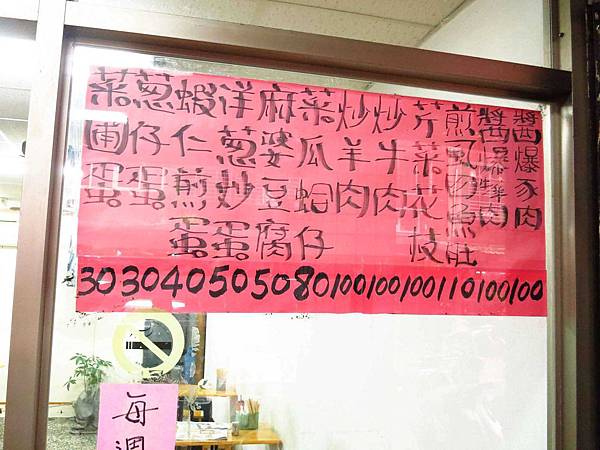 醬爆豕肉
醬爆肉
煎虱魚肚
芹菜花枝
炒牛肉
炒羊肉
菜瓜蛤仔
麻婆豆腐
洋葱炒蛋
蝦仁煎蛋
葱仔蛋
菜圃蛋
30 30 40 50 50 80 100 100 100 110 100 100
每週